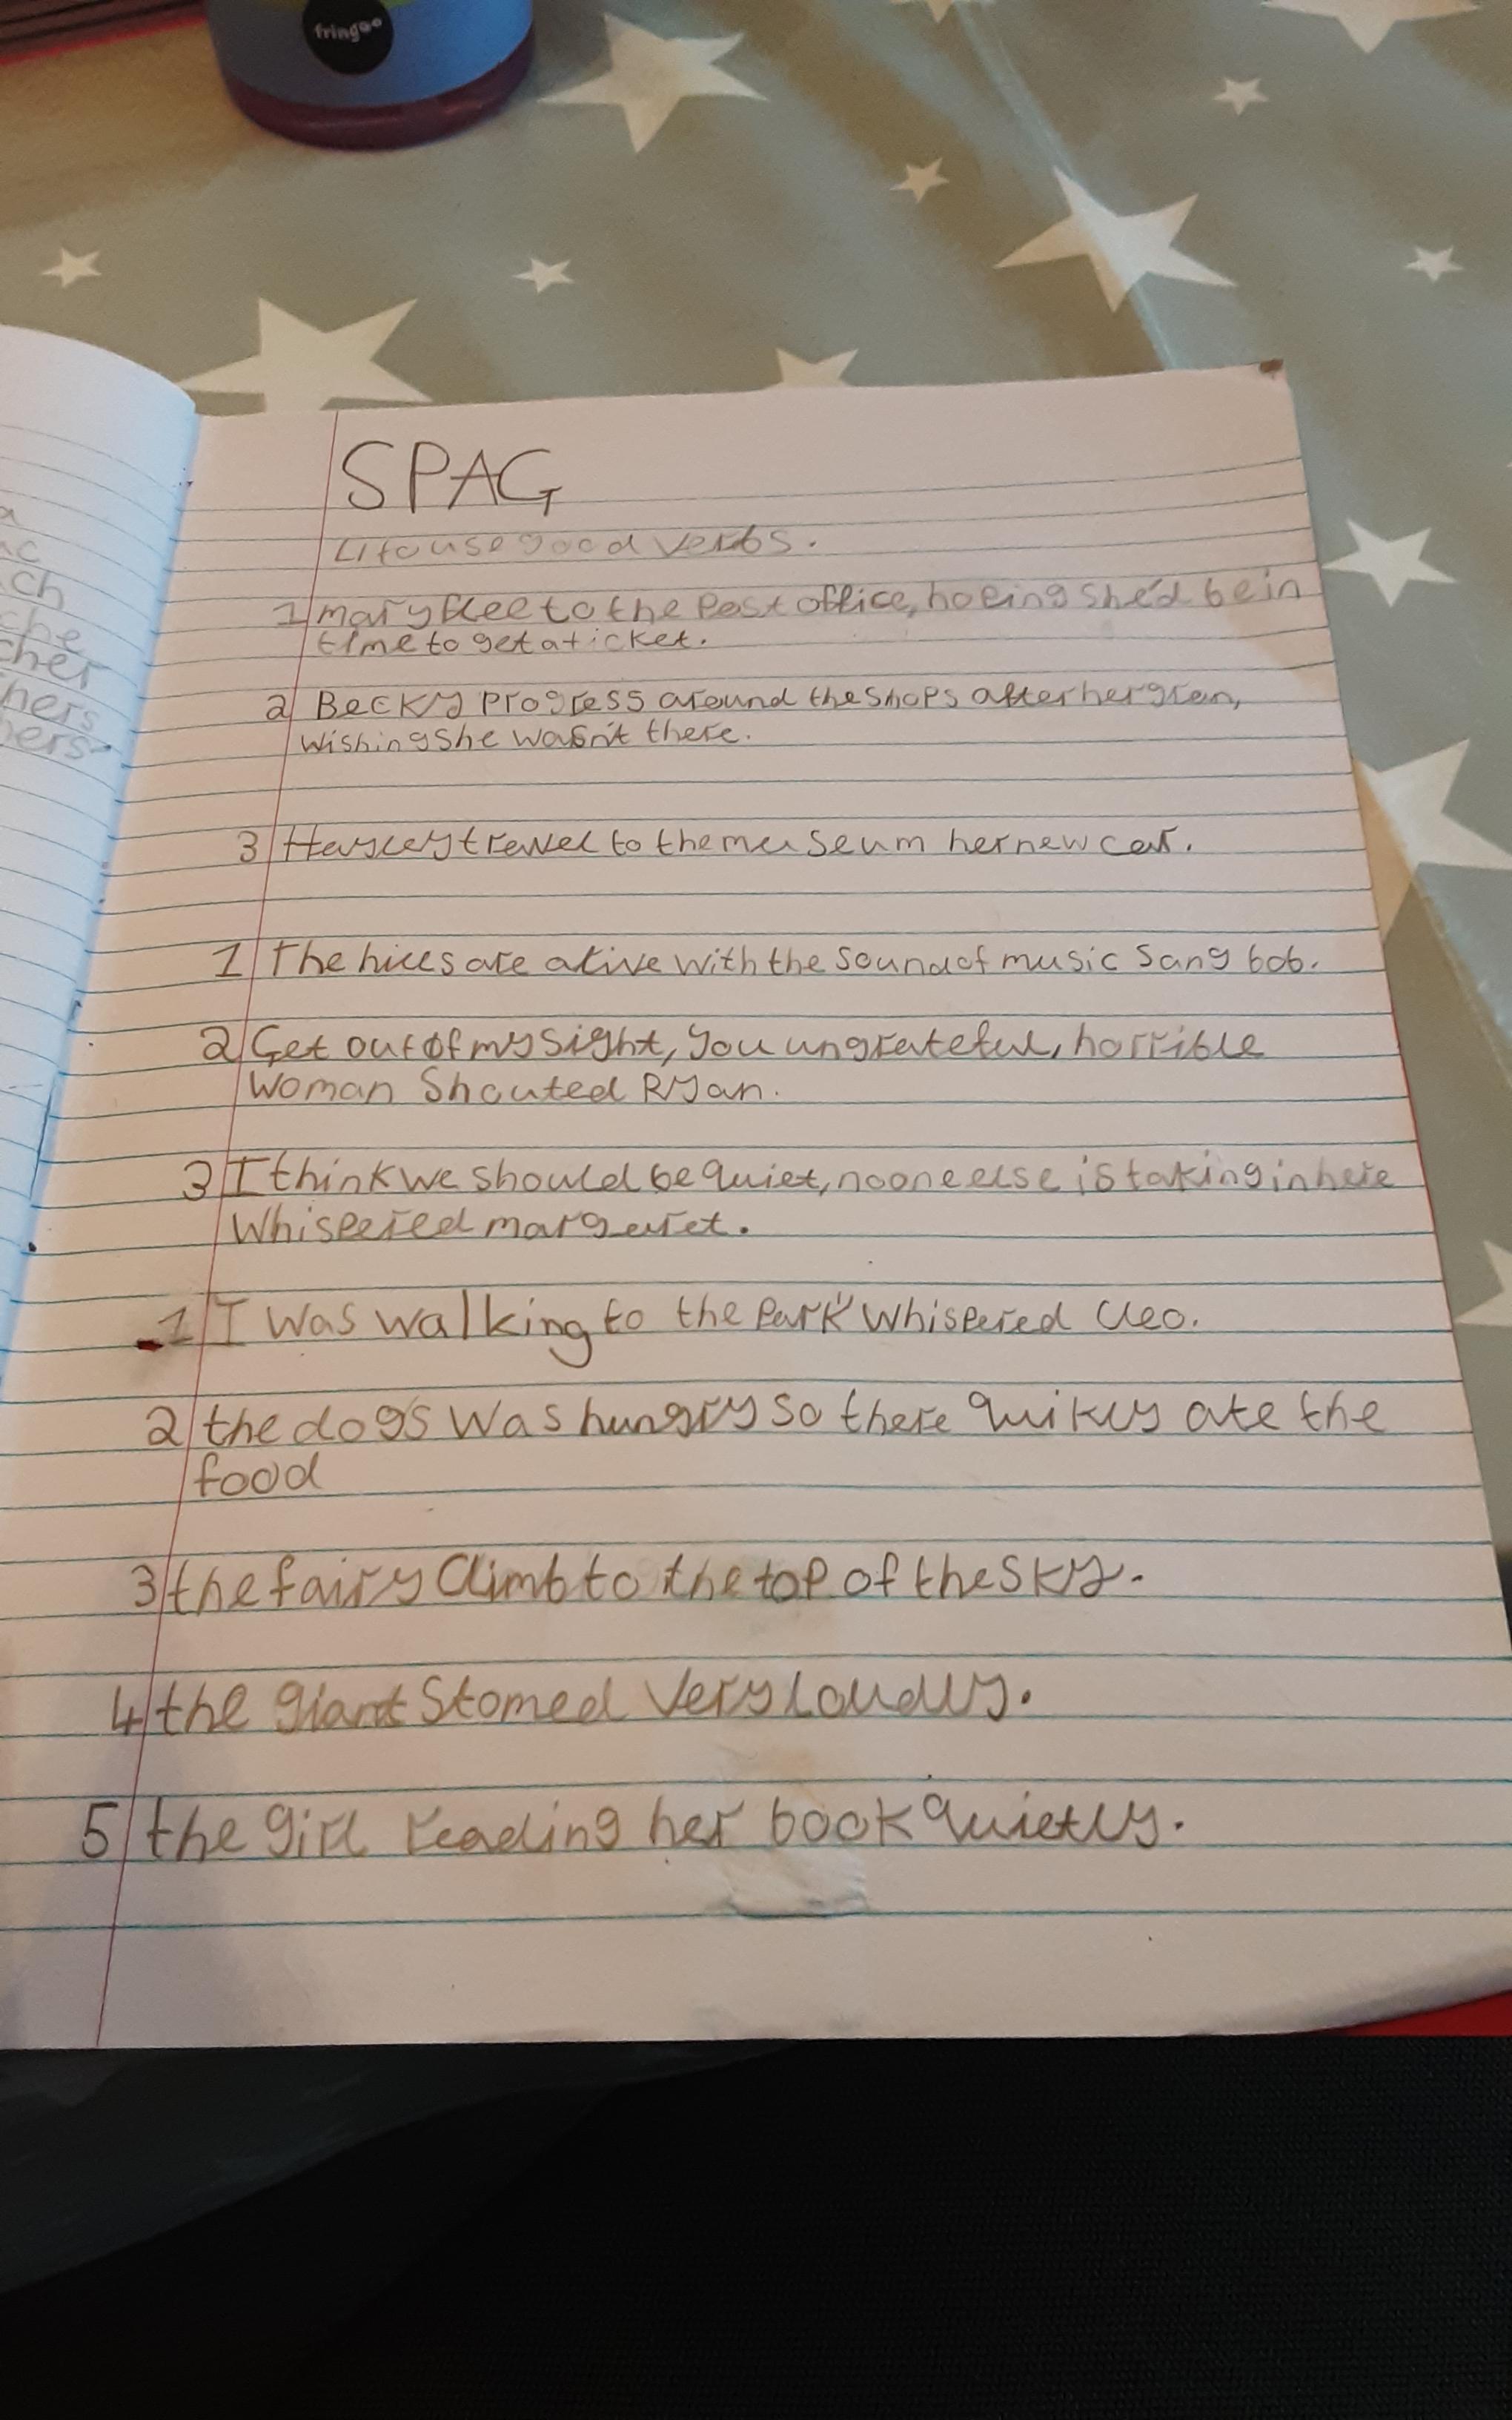 fringoo
SPAG
LI to use good verbs.
1 mary flee to the Post office, hoping she'd be in
time to get a ticket.
2 Becky Progress around the shops after her gran,
wishing she wasn't there.
3 Hayley travel to the museum her new car.
1 The hills are alive with the sound of music sang bob.
2 Get out of my sight, you ungrateful, horrible
woman shouted Ryan.
3 I think we should be quiet, no one else is taking in here
whispered margaret.
1 I was walking to the Park" whispered Cleo.
2 the dogs was hungry so there quikly ate the
food
3 the fairy climb to the top of the sky.
4 the giant stomed very loudly.
5 the girl reading her book quietly.
ch
che
cher
hers
hers